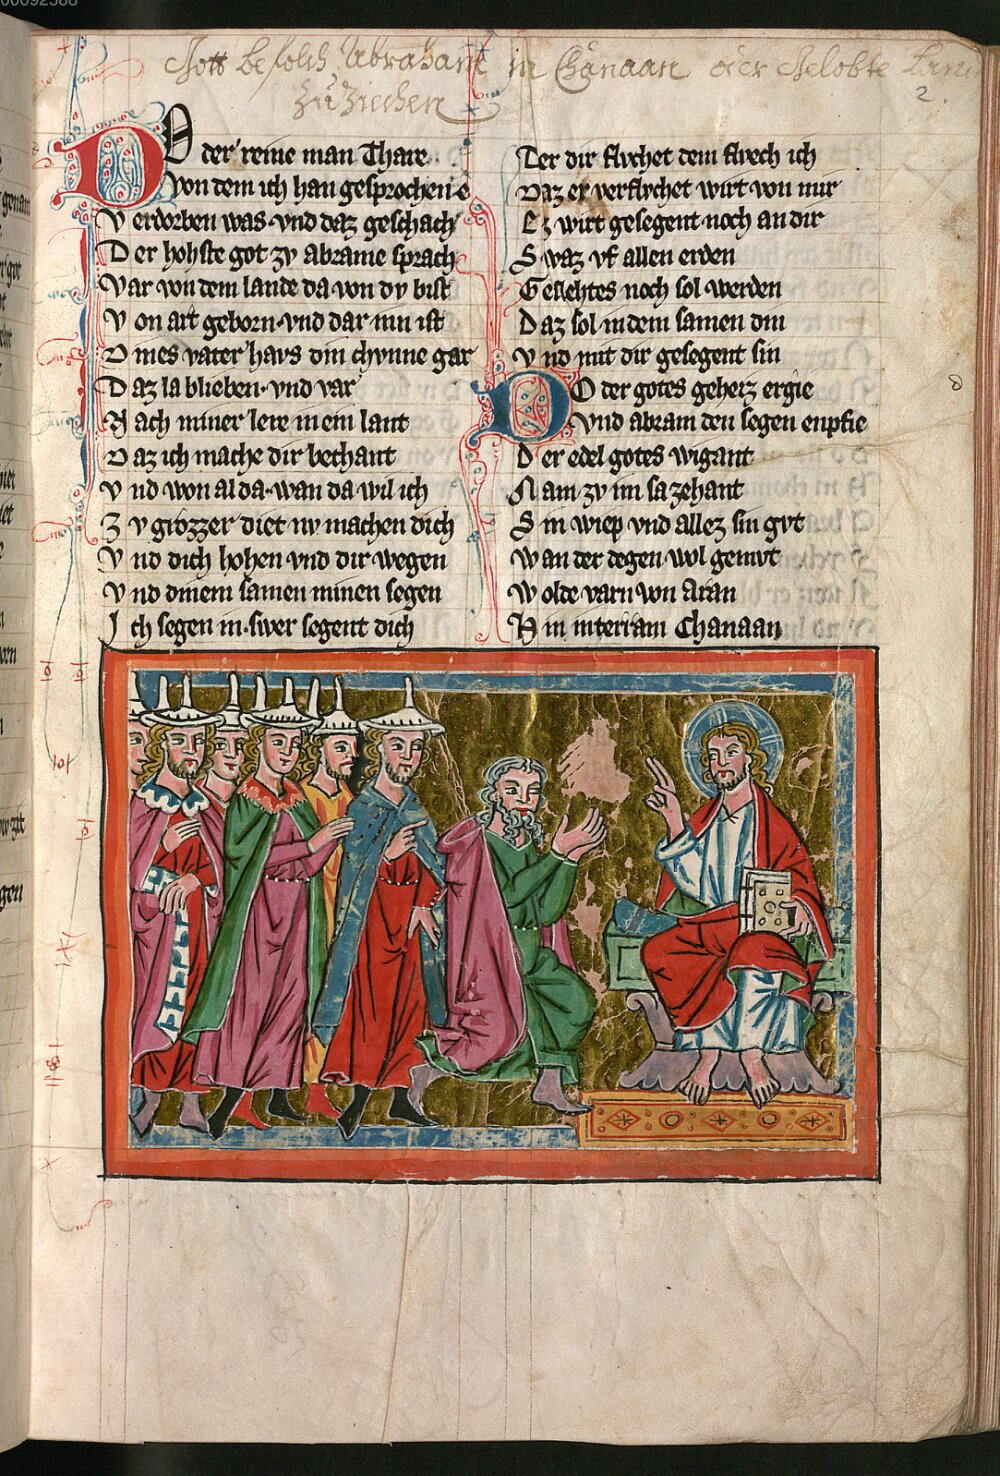 00092588
Gott befolch Abraham in Canaan oder gelobte Land
zu ziechen
2
DO der reine man Thare
Von dem ich han gesprochen e
Verdorben was · vnd daz geschach
Der hohste got zv abrame sprach
Var von dem lande da von dv bist
Von art geborn · vnd dar inn ist
Dines vater havs din chvnne gar
Daz la bliben · vnd var
Nach miner lere in ein lant
Daz ich mache dir bechant
Vnd won al da · wan da wil ich
Zv grozzer diet nv machen dich
Vnd dich hohen vnd dir wegen
Vnd dinem samen minen segen
Ich segen in · swer segent dich
Der dir flvchet dem flvch ich
Daz er verflvchet wirt von mir
Ez wirt gesegent noch an dir
Swaz vf allen erden
Geslehtes noch sol werden
Daz sol in dem samen din
Vnd mit dir gesegent sin
DO der gotes geheiz ergie
Vnd abram den segen enpfie
Der edel gotes wigant
Nam zv im sa zehant
Sin wiep vnd allez sin gvt
Wan der degen wol gemvt
Wolde varn von Aran
Hin in terram Chanaan